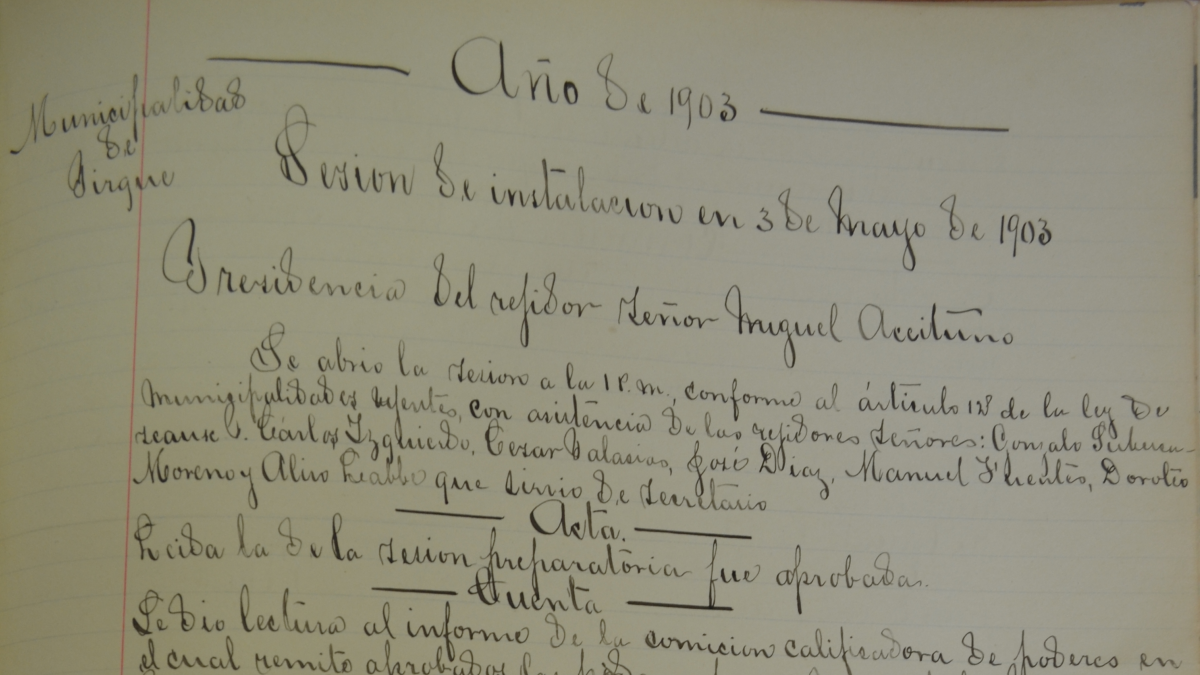 Año de 1903
Municipalidad
de
Pirque
Sesion de instalacion en 3 de Mayo de 1903
Presidencia del rejidor señor Miguel Aceituño
Se abrio la sesion a la 1 P.m., conforme al artículo 128 de la ley de
Municipalidades vijentes, con asistencia de los rejidores señores: Gonzalo
Cárlos Izquierdo, Cesar José Diaz, Manuel Fuentes, Doroteo
Moreno y Aliro que sirvio de secretario
Acta.
Leida la de la sesion preparatoria fue aprobada.
Cuenta
Se dio lectura al informe de la comicion calificadora de poderes en
el cual remite